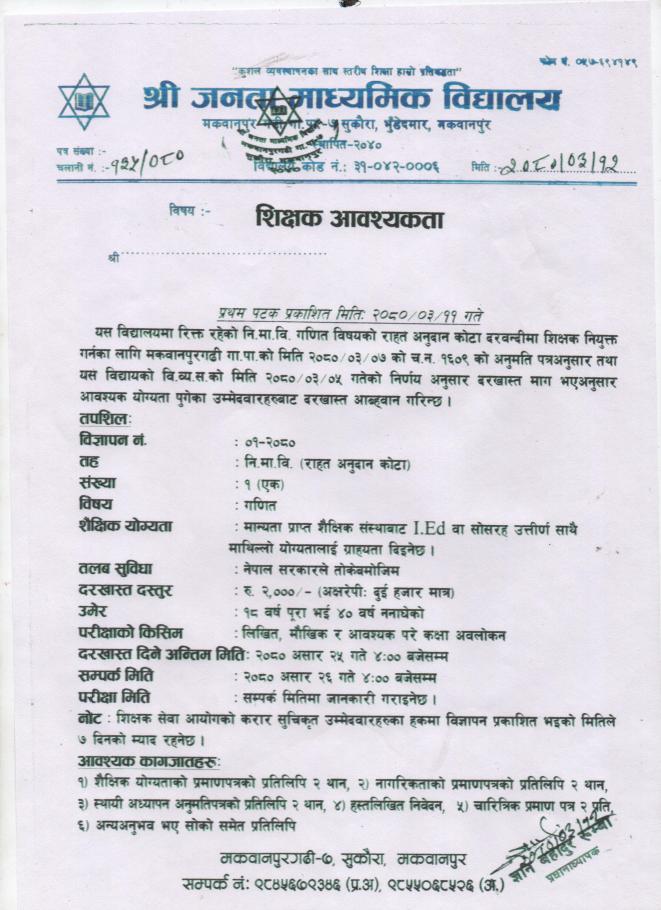 "कुशल व्यवस्थापनका साथ स्तरीय शिक्षा हाम्रो प्रतिबद्धता"
फोन नं. ०५७-६९४१४९
श्री जनता माध्यमिक विद्यालय
मकवानपुरगढी गा.पा.-७ सुकौरा, भुँडेदमार, मकवानपुर
स्थापित-२०४०
पत्र संख्या :-
चलानी नं. :-१२५/०८०
विद्यालय कोड नं.: ३१-०४२-०००६
मिति :-२०८०/०३/१२
विषय :- शिक्षक आवश्यकता
श्री
प्रथम पटक प्रकाशित मितिः २०८०/०३/११ गते
यस विद्यालयमा रिक्त रहेको नि.मा.वि. गणित विषयको राहत अनुदान कोटा दरवन्दीमा शिक्षक नियुक्त
गर्नका लागि मकवानपुरगढी गा.पा.को मिति २०८०/०३/०७ को च.न. १६०९ को अनुमति पत्रअनुसार तथा
यस विद्यायको वि.व्य.स.को मिति २०८०/०३/०५ गतेको निर्णय अनुसार दरखास्त माग भएअनुसार
आवश्यक योग्यता पुगेका उम्मेदवारहरुबाट दरखास्त आब्हवान गरिन्छ ।
तपशिलः
विज्ञापन नं. : ०१-२०८०
तह : नि.मा.वि. (राहत अनुदान कोटा)
संख्या : १ (एक)
विषय : गणित
शैक्षिक योग्यता : मान्यता प्राप्त शैक्षिक संस्थाबाट I.Ed वा सोसरह उत्तीर्ण साथै
माथिल्लो योग्यतालाई ग्राहयता दिइनेछ ।
तलब सुविधा : नेपाल सरकारले तोकेबमोजिम
दरखास्त दस्तुर : रु. २,०००/- (अक्षरेपीः दुई हजार मात्र)
उमेर : १८ वर्ष पूरा भई ४० वर्ष ननाघेको
परीक्षाको किसिम : लिखित, मौखिक र आवश्यक परे कक्षा अवलोकन
दरखास्त दिने अन्तिम मितिः २०८० असार २५ गते ४:०० बजेसम्म
सम्पर्क मिति : २०८० असार २६ गते ४:०० बजेसम्म
परीक्षा मिति : सम्पर्क मितिमा जानकारी गराइनेछ ।
नोट : शिक्षक सेवा आयोगको करार सुचिकृत उम्मेदवारहरुका हकमा विज्ञापन प्रकाशित भइको मितिले
७ दिनको म्याद रहनेछ ।
आवश्यक कागजातहरुः
१) शैक्षिक योग्यताको प्रमाणपत्रको प्रतिलिपि २ थान, २) नागरिकताको प्रमाणपत्रको प्रतिलिपि २ थान,
३) स्थायी अध्यापन अनुमतिपत्रको प्रतिलिपि २ थान, ४) हस्तलिखित निवेदन, ५) चारित्रिक प्रमाण पत्र २ प्रति,
६) अन्यअनुभव भए सोको समेत प्रतिलिपि
२०८०/०३/१२
ज्ञान बहादुर रुम्बा
प्रधानाध्यापक
मकवानपुरगढी-७, सुकौरा, मकवानपुर
सम्पर्क नंः ९८४५६७९३४६ (प्र.अ), ९८५५०६८५२६ (अ.)